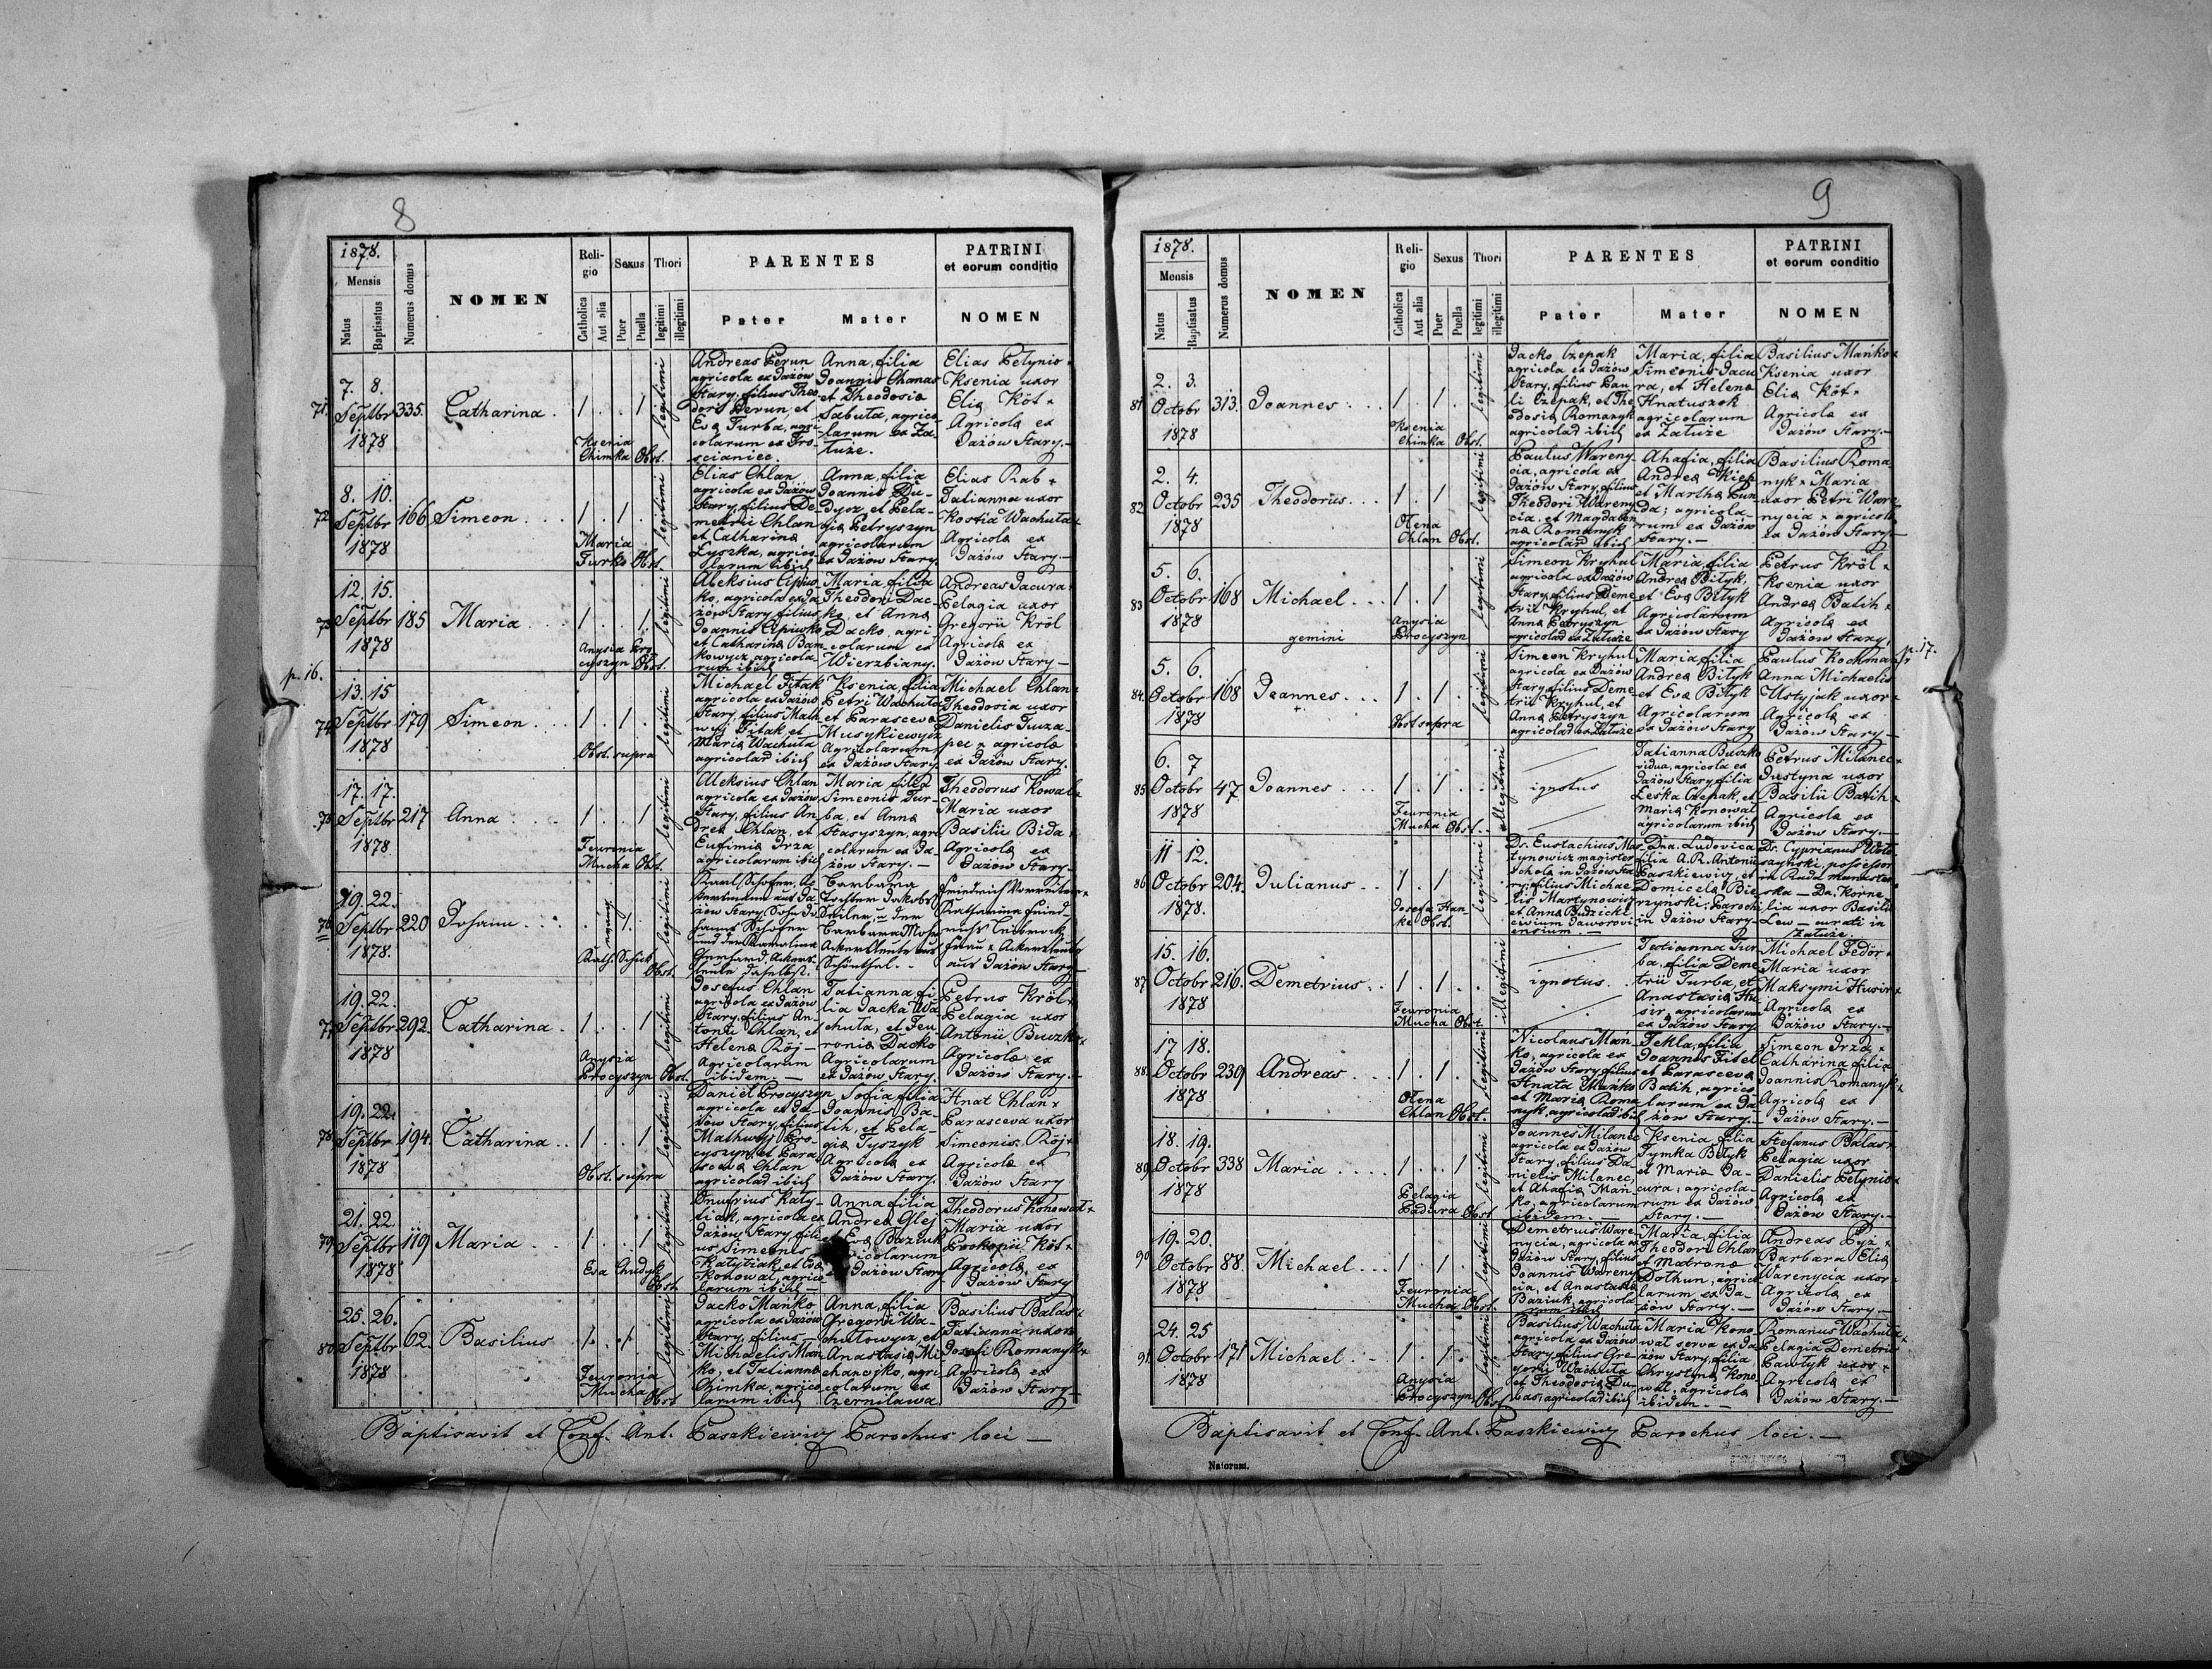 8
1878.
Mensis
Natus
Baptisatus
Numerus domus
NOMEN
Religio
Catholica
Aut alia
Sexus
Puer
Puella
Thori
legitimi
illegitimi
PARENTES
Pater
Mater
PATRINI
et eorum conditio
NOMEN
71.
7. 8.
Septbr
1878
335.
Catharina
legitimi
Ksenia
Chimka Obst.
Andreas Perun
agricola ex Jażów
Stary, filius Theo
dori Perun et
Eva Turba, agri
colarum ex Tro-
scianiec.
Anna, filia
Joannis Chanas
et Theodosia
Sabuta, agrico
larum ex Za
łuże.
Elias Petynio
Ksenia uxor
Eliæ Kót
Agricolæ ex
Jażów Stary.
72.
8. 10.
Septbr
1878
166.
Simeon
legitimi
Maria
Turko Obst.
Elias Chlan
agricola ex Jażów
Stary, filius De-
metrii Chlan
et Catharina
Łyszka, agrico
larum ibid
Anna, filia
Joannis Du-
dycz, et Pela-
gia Petryszyn
agricolarum
ex Jażów Stary
Elias Rab
Tatianna uxor
Kostia Wachuta
Agricolæ ex
Jażów Stary.
73.
12. 15.
Septbr
1878
185
Maria
legitimi
Anysia Pro
cyszyn Obst.
Maria, filia
Theodori Dac-
ko, et Anna
Dacko, agri-
colarum ex
Wierzbiany.
Andreas Jacura
Pelagia uxor
Gregorii Król
Agricolæ ex
Jażów Stary
p. 16.
74.
13. 15
Septbr
1878
179
Simeon
legitimi
Obst. supra
Michael Fitak
agricola ex Jażów
Stary, filius Math
wij Fitak, et
Maria Wachuta
agricolar ibid
Ksenia, filia
Petri Wachuta
et Parasceva
Musykiewycz
Agricolarum
ex Jażów Stary.
Michael Chlan
Theodosia uxor
Danielis Tuza-
pec agricolæ
ex Jażów Stary.
75
17. 17.
Septbr
1878
217
Anna
legitimi
Feuronia
Mucha Obst.
Aleksius Chlan
agricola ex Jażów
Stary, filius An
drea Chlan, et
Eufimia Irza
agricolarum ibid
Maria filia
Simeonis Tur-
ba, et Anna
Stasyszyn, agri
colarum ex Ja-
żów Stary.
Theodorus Kowal
Maria uxor
Basilii Bida
Agricolæ ex
Jażów Stary
76
19. 22.
Septbr
1878.
220
Johann
legitimi
Obst.
77
19. 22.
Septbr
1878
292.
Catharina
legitimi
Anysia
Procyszyn Obst.
Josefus Chlan
agricola ex Jażów
Stary, filius An-
tonii Chlan, et
Helena Rój
Agricolarum
ibidem.
Tatianna fi-
lia Jacka Wa
chuta, et Feu
ronia Dacko
Agricolarum
ex Jażów Stary.
Petrus Król
Pelagia uxor
Antonii Buczko
Agricolæ ex
Jażów Stary.
78.
19. 22.
Septbr
1878
194.
Catharina
legitimi
Obst. supra
Daniel Procyszyn
agricola ex Ja-
żów Stary, filius
Mathwij Pro-
cyszyn, et Para
sceva Chlan
agricolar ibid
Sofia filia
Joannis Ba-
tih, et Pela-
gia Tyszyk
Agricolæ ex
Jażów Stary.
Hnat Chlan
Parasceva uxor
Simeonis Rój
Agricolæ ex
Jażów Stary
79.
21. 22.
Septbr
1878
119
Maria
legitimi
Eva Chudyk
Obst.
Onufrius Katy-
tiak, agricola ex
Jażów Stary, fili
us Simeonis
Katytiak, et Eva
Konowal, agrico
larum ibid
Anna filia
Andrea Glej
et Eva Baziuk
Jażów Stary
Theodorus Konowal
Maria uxor
Prokopii Kót
Agricolæ ex
Jażów Stary
80
25. 26.
Septbr
1878
62.
Basilius
legitimi
Feuronia
Mucha
Obst.
Jacko Mańko
agricola ex Jażów
Stary, filius
Michaelis Mań
ko, et Tatianna
Chimka, agrico
larum ibid
Anna, filia
Gregorii Wa-
chutowycz et
Anastasia Mi
chancjko, agri
colarum ex
Czernilawa
Basilius Balas
Tatianna uxor
Josefi Romanyk
Agricolæ ex
Jażów Stary
Baptisavit et Conf. Ant. Paszkiewicz Parochus loci
9
1878.
Mensis
Natus
Baptisatus
Numerus domus
NOMEN
Religio
Catholica
Aut alia
Sexus
Puer
Puella
Thori
legitimi
illegitimi
PARENTES
Pater
Mater
PATRINI
et eorum conditio
NOMEN
81
2. 3.
Octobr
1878
313.
Joannes
legitimi
Ksenia
Chimka Obst.
Jacko Czepak
agricola ex Jażów
Stary, filius Pau
li Czepak, et The
odosia Romanyk
agricolar ibid
Maria, filia
Simeonis Jacu
ra, et Helena
Hnatuszok
agricolarum
ex Załuże
Basilius Mańko
Ksenia uxor
Eliæ Kót
Agricolæ ex
Jażów Stary.
82
2. 4.
Octobr
1878
235
Theodorus
legitimi
Olena
Chlan Obst.
Paulus Wareny
cia, agricola ex
Jażów Stary, filius
Theodori Wareny
cia, et Magdale
na Romanyk
agricolar ibid
Ahafia, filia
Andrea Kiep
et Martha Pun
da; agricola-
rum ex Jażów
Stary.
Basilius Roma
nyk Maria
uxor Petri War
nycia agricolæ
ex Jażów Stary.
83
5. 6.
Octobr
1878
168
Michael
gemini
legitimi
Anysia
Procyszyn
Simeon Kryhul
agricola ex Jażów
Stary, filius Deme
trii Kryhul, et
Anna Petryszyn
agricolar ex Załuże
Maria, filia
Andrea Biłyk,
et Eva Biłyk
Agricolarum
ex Jażów Stary
Petrus Król
Ksenia uxor
Andrea Batih
Agricolæ ex
Jażów Stary.
p. 17.
84.
5. 6.
Octobr
1878
168
Joannes
legitimi
Obst supra
Simeon Kryhul
agricola ex Jażów
Stary, filius Deme
trii Kryhul, et
Anna Petryszyn
agricolar ex Załuże
Maria, filia
Andrea Biłyk
et Eva Biłyk
Agricolarum
ex Jażów Stary
Paulus Kochman
Anna Michaelis
Ustyjak uxor
Agricolæ ex
Jażów Stary
85
6. 7
Octobr
1878
47
Joannes
illegitimi
Feuronia
Mucha Obst.
ignotus
Tatianna Buczko
vidua, agricola ex
Jażów Stary, filia
Leśka Czepak, et
Maria Konowal
agricolarum ibid
Petrus Milanec
Justyna uxor
Basilii Batih
Agricolæ ex
Jażów Stary.
86
11 12.
Octobr
1878.
204.
Julianus
legitimi
Josefa Han-
ke Obst.
Ds. Eustachius Mar
tynowicz magister
Scholæ in Jażów Sta
ry, filius Michae
lis Martynowicz
et Anna Budzicki
civium Jaworovi
ensium.
Dna. Ludovica
filia A. R. Antonii
Paszkiewicz, et
Domicela Bie
rzyński, Parochi
in Jażów Stary
Ds. Cyprianus Woło
szyński, possessor
in Ruda monaster
ska Da. Korne
lia uxor Basilii
Lew curati in
Załuże.
87
15. 16.
Octobr
1878
216.
Demetrius
illegitimi
Feuronia
Mucha Obst.
ignotus
Tatianna Tur
ba, filia Deme
trii Turba, et
Anastasia Hu
sir, agricolarum
ex Jażów Stary
Michael Fedór
Maria uxor
Maksymi Husir
Agricolæ ex
Jażów Stary.
88.
17 18.
Octobr
1878
239
Andreas
legitimi
Olena
Chlan Obst.
Nicolaus Mań
ko, agricola ex
Jażów Stary, filius
Hnata Mańko
et Maria Roma
nyk, agricolar ibid
Tekla, filia
Joannis Fitel
et Parasceva
Batih, agrico
larum ex Ja
żów Stary.
Simeon Irza
Catharina filia
Joannis Romanyk
Agricolæ ex
Jażów Stary.
89
18. 19.
Octobr
1878
338
Maria
legitimi
Pelagia
Badura Obst
Joannes Milanec
agricola ex Jażów
Stary, filius Da-
nielis Milanec,
et Ahafia Mań-
ko, agricolarum
ibidem.
Ksenia filia
Tymka Biłyk
et Maria Ja-
cura; agricola
rum ex Jażów
Stary.
Stefanus Balas
Pelagia uxor
Danielis Petynio
Agricolæ ex
Jażów Stary.
90
19. 20.
Octobr
1878
88.
Michael
legitimi
Feuronia
Mucha Obst.
Demetrius Ware
nycia, agricola ex
Jażów Stary, filius
Joannis Wareny
cia, et Anastasia
Baziuk, agricola
rum ibid
Maria, filia
Theodori Chlan
et Matrona
Dothun, agrico
larum ex Ja-
żów Stary.
Andreas Pyż
Barbara Eliæ
Warenycia uxor
Agricolæ ex
Jażów Stary.
91
24. 25
Octobr
1878
171
Michael
legitimi
Anysia
Procyszyn Obst
Basilius Wachuta
agricola ex Jażów
Stary, filius Gre-
gorii Wachuta
et Theodosia Du-
bas; agricolar ibid
Maria Kono
wal serva ex Ja
żów Stary, filia
Chrystyna Kono
wal, agricola
ibidem.
Romanus Wachuta
Pelagia Demetrii
Pawłyk uxor
Agricolæ ex
Jażów Stary.
Baptisavit et Conf. Ant. Paszkiewicz Parochus loci.
Natorum.